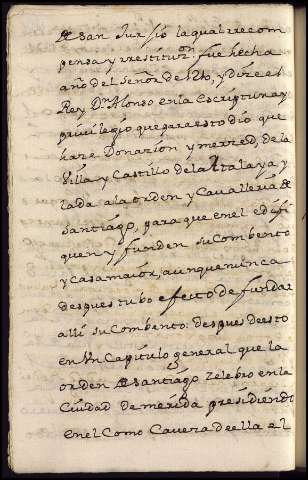 de san Jurjio la qual rrecom
pensa y rrestituzon. fue hecha
año del señor de 1210, y dize el
Rey Dn Alonso en la escriptura y
privilegio que para esto dio que
haze Donazion y merzed, de la
Villa y Castillo de la Atalaya y
lada a la orden y Cavalleria de
Santiago, para que en el edifi
quen y funden su Combento
y casa maior, aunque nunca
despues tubo efecto de fundar
alli su Combento: despues de esto
en Vn Capitulo general que la
orden de santiago zelebro en la
Ciudad de merida presidiendo
en el Como Cavera de ella el